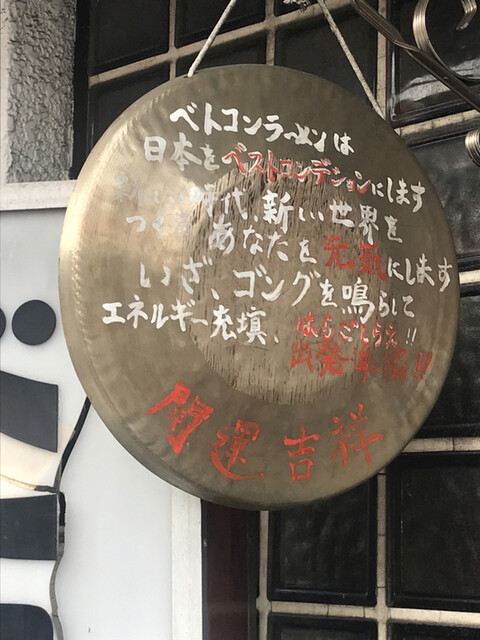 ベトコンラーメンは
日本をベストコンデションにします
新しい時代、新しい世界を
つくる あなたを元気にします
いざ、ゴングを鳴らして
エネルギー充填、はらごしらえ!!
出発準備!!
開運吉祥